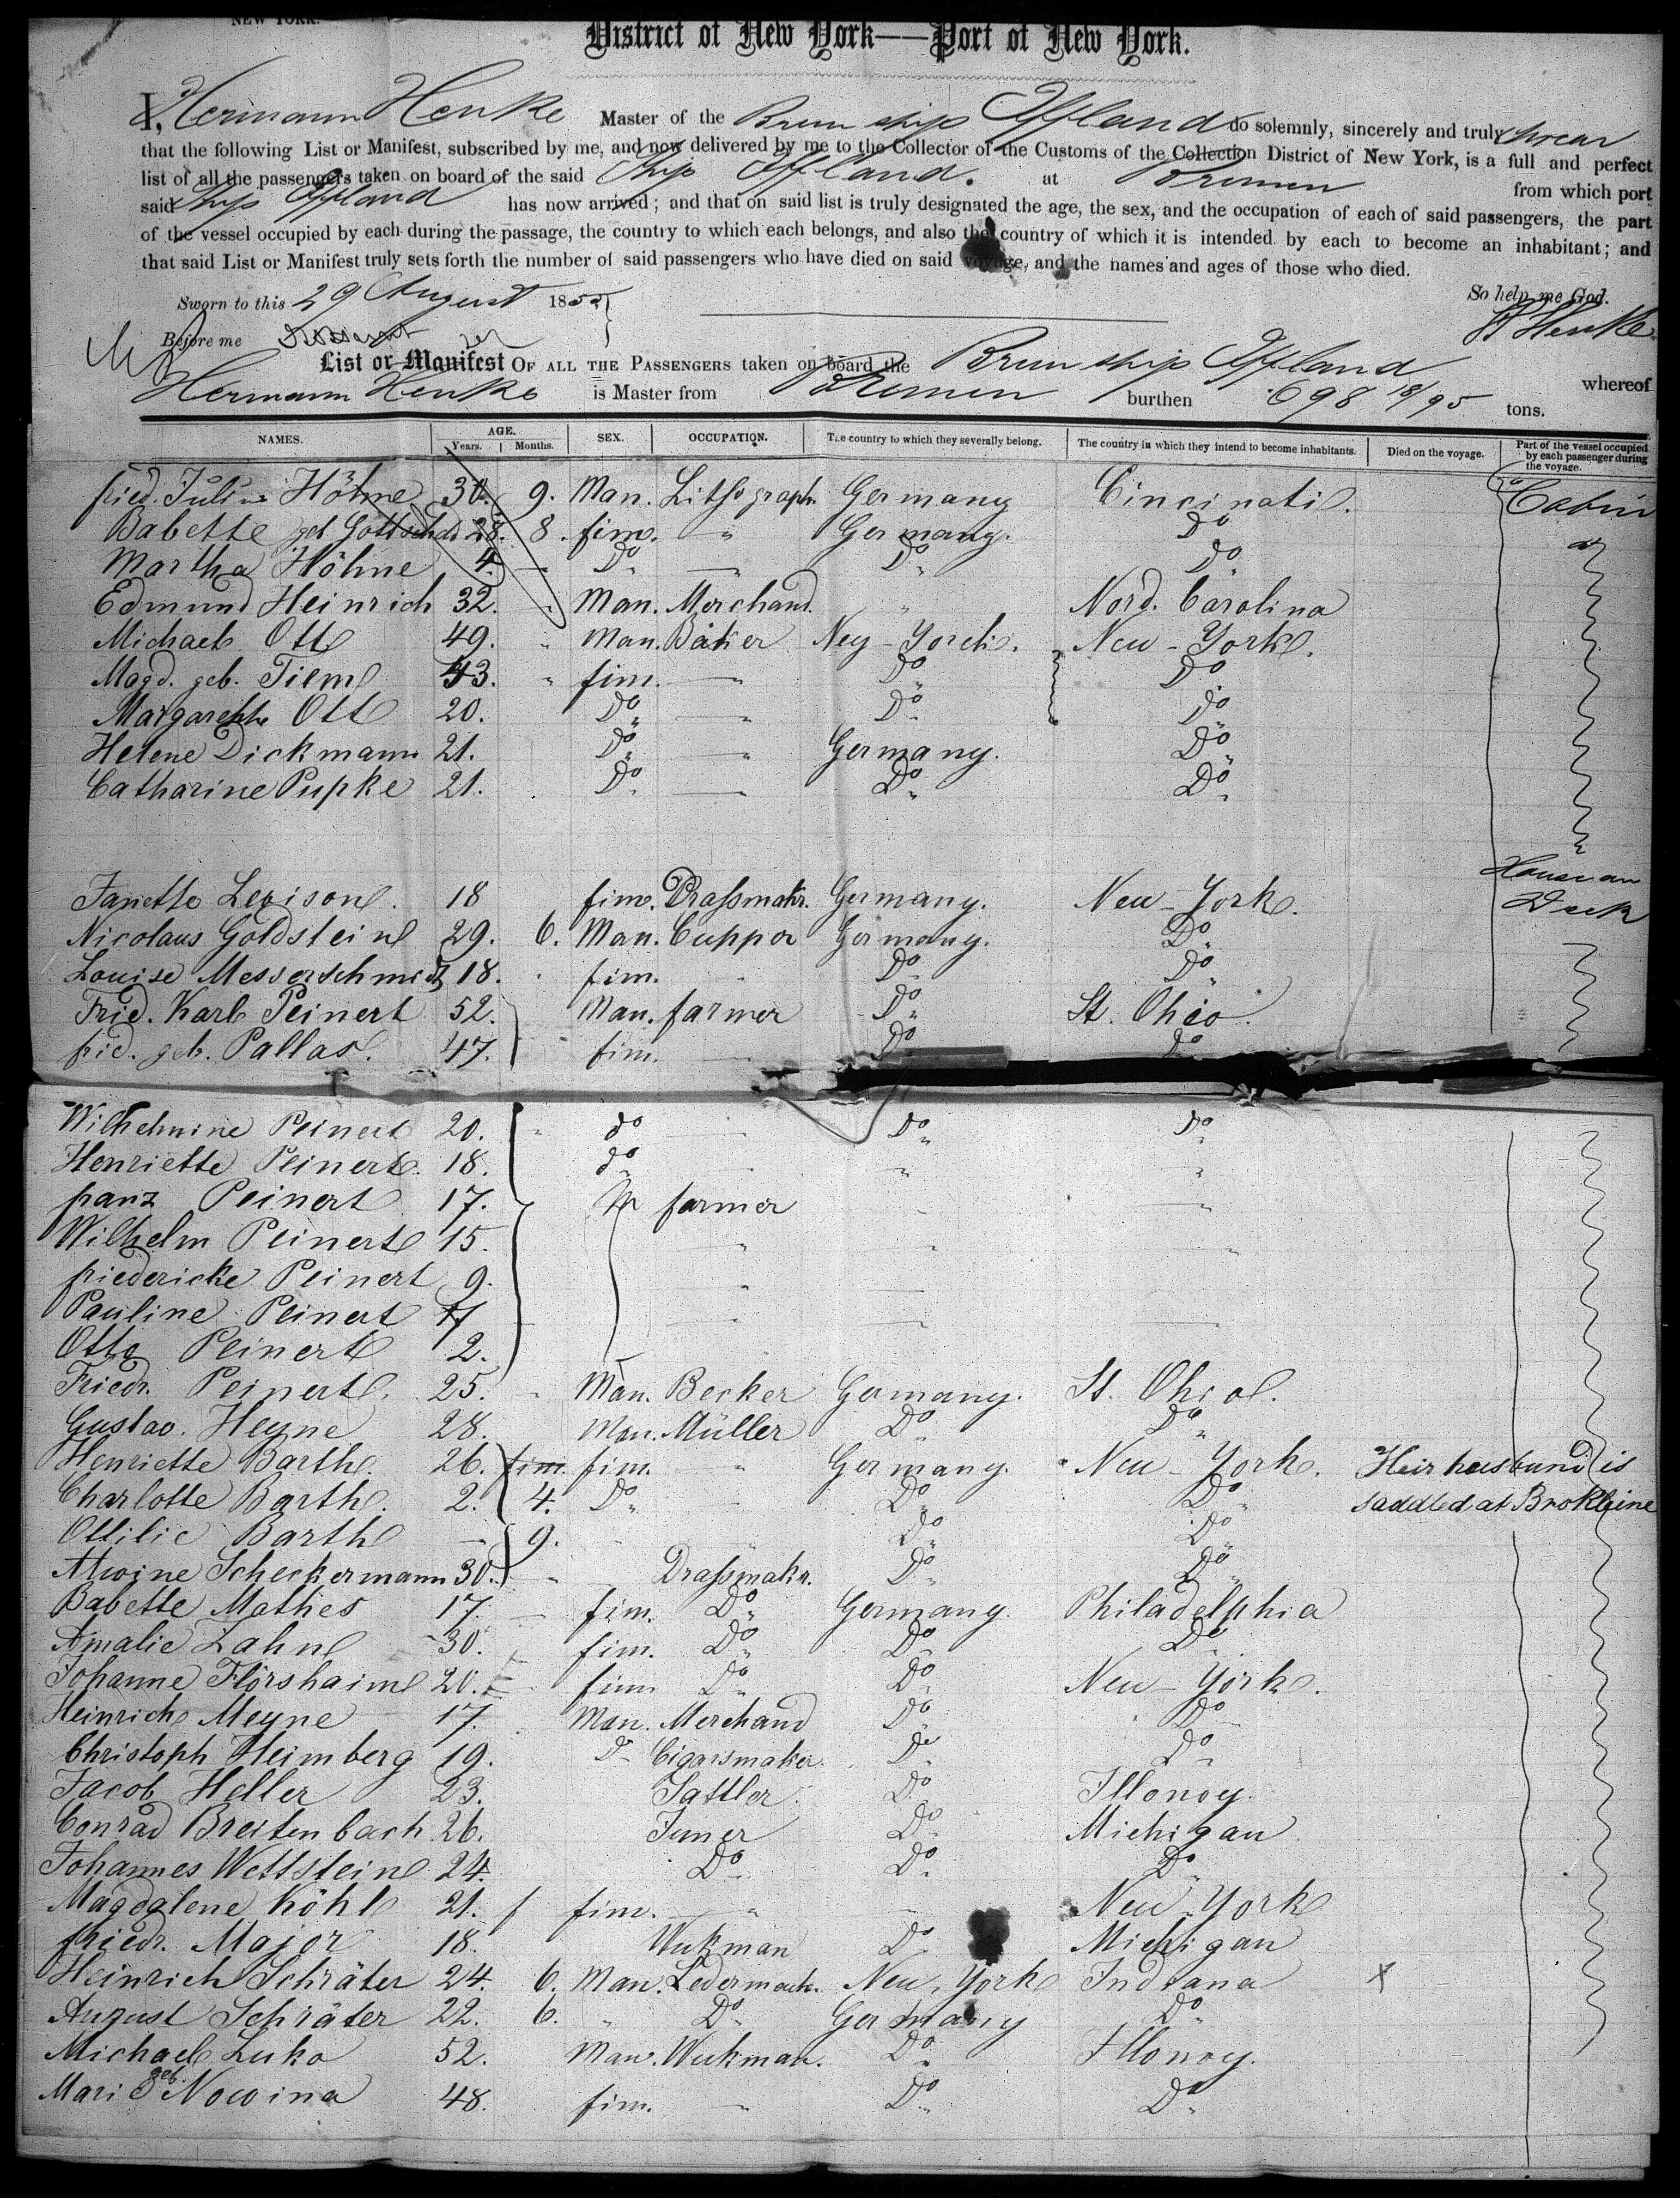 NEW YORK.
District of New York——Port of New York.
I, Hermann Henke Master of the Brem ship Iffland do solemnly, sincerely and truly swear
that the following List or Manifest, subscribed by me, and now delivered by me to the Collector of the Customs of the Collection District of New York, is a full and perfect
list of all the passengers taken on board of the said Ship Iffland. at Bremen from which port
said Ship Iffland has now arrived; and that on said list is truly designated the age, the sex, and the occupation of each of said passengers, the part
of the vessel occupied by each during the passage, the country to which each belongs, and also the country of which it is intended by each to become an inhabitant; and
that said List or Manifest truly sets forth the number of said passengers who have died on said voyage, and the names and ages of those who died.
So help me God.
Sworn to this 29 August 1855
H Henke
Before me
List or Manifest OF ALL THE PASSENGERS taken on board the Brem ship Iffland whereof
Hermann Henke is Master from Bremen burthen 698 18/95 tons.
NAMES. AGE. Years. Months. SEX. OCCUPATION. The country to which they severally belong. The country in which they intend to become inhabitants. Died on the voyage. Part of the vessel occupied by each passenger during the voyage.
fried. Julius Höhne 30. 9. Man. Lithograph Germany Cincinatie. Cabin
Babette geb Gottschad 28. 8. fim. " Germany. Do
Martha Höhne 4. — Do — Do Do
Edmund Heinrich 32. " Man. Merchand. " Nord. Carolina
Michael Ott 49. " Man. Baker Ney-Yorck. Neu-York.
Magd. geb. Tieme 43. " fim. — Do Do
Margarethe Ott 20. Do — Do Do
Helene Dickmann 21. Do " Germany. Do
Catharine Pupke 21. Do — Do Do
House on
Janette Levison. 18 fim. Drassmakr. Germany. Neu-York. Deck
Nicolaus Goldstein 29. 6. Man. Cuppor Germany. Do
Louise Messerschmidt 18. fim. Do Do
Fried. Karl Peinert 52. Man. farmer Do St. Ohio.
frid. geb. Pallas. 47. fim. — Do Do
Wilhelmine Peinert 20. " do — Do Do
Henriette Peinert. 18. do " "
franz Peinert 17. M farmer
Wilhelm Peinert 15. " " "
friedericke Peinert 9. " —
Pauline Peinert 7 — " — —
Otto Peinert 2.
Friedr. Peinert. 25. " Man. Becker Germany. St. Ohiol.
Gustav. Heyne 28. Man. Müller Do Do
Henriette Barth. 26. fim. fim. " Germany. Neu-York. Heir husbund is
Charlotte Barth. 2. 4. Do Do Do saddled at Brokleine
Ottilie Barth — 9. Do Do
Alwine Scheckermann 30. " Drassmakr. Do Do
Babette Mathes 17. — fim. Do Germany. Philadelphia
Amalie Zahn 30. fim. Do Do Do
Johanne Florshaim 20. fim Do Do Neu-York.
Heinrich Meyne 17. Man. Merchand Do Do
Christoph Heimberg 19. Do Cigarsmaker. Do Do
Jacob Heller 23. Sattler. Do Illonoy.
Conrad Breitenbach 26. Juner Do Michigan
Johannes Wettstein 24. Do Do Do
Magdalene Köhl 21. f fim. — " Neu-York
friedr. Major 18. Wukman Do Michigan
Heinrich Schräter 24. 6. Man. Ledermach. Neu-York Indiana X
August Schräter 22. 6. " Do Germany Do
Michael Luka 52. Man. Wukman. Do Illonoy.
Marie geb. Nowina 48. fim. " Do Do